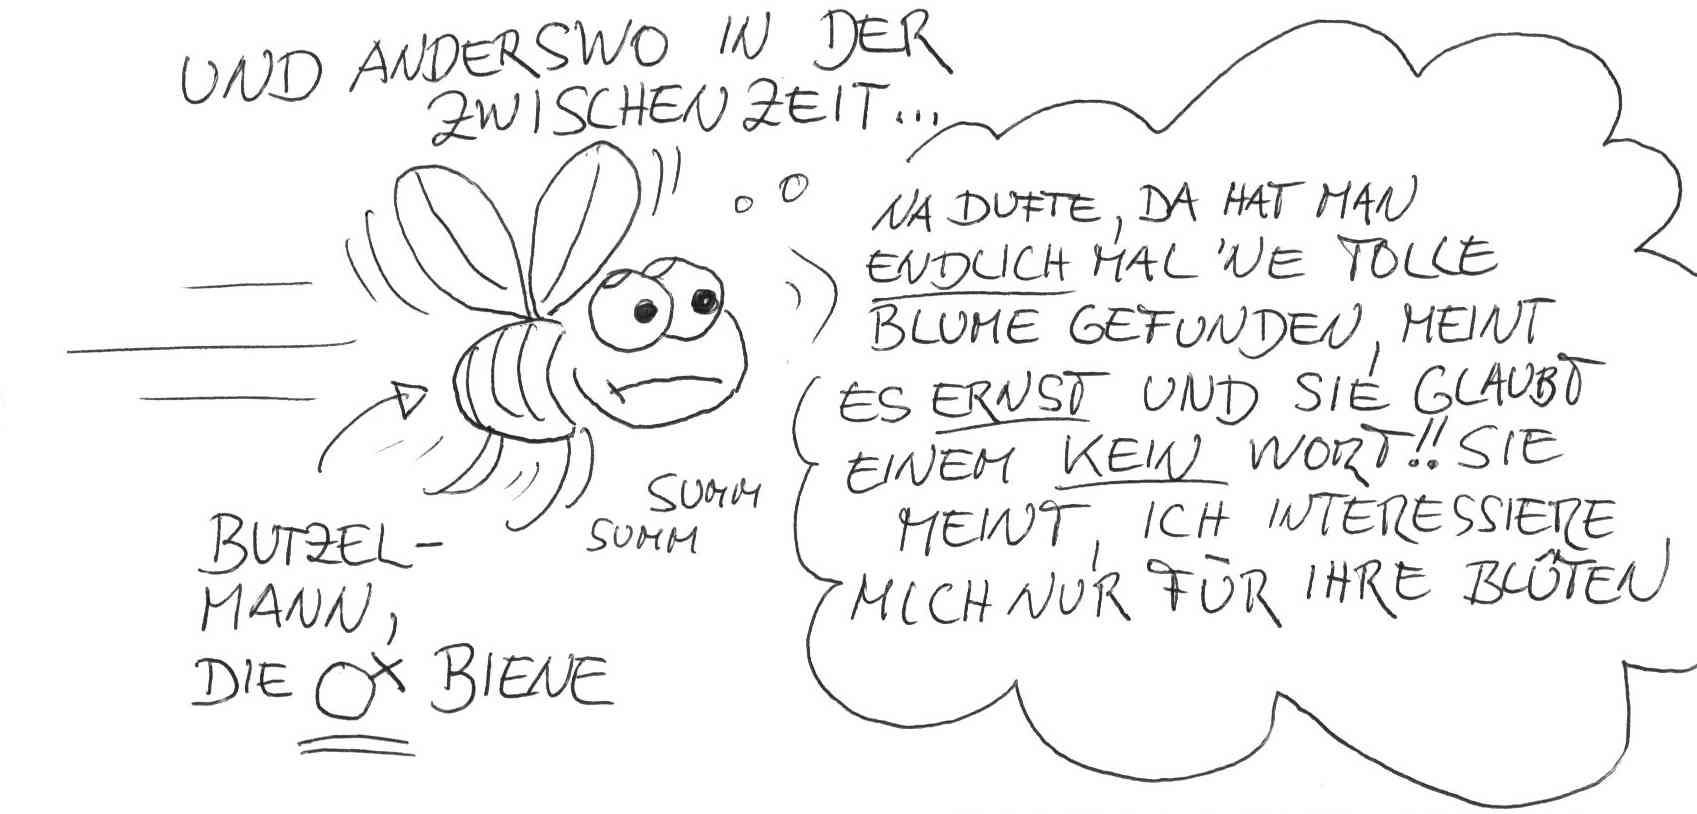 UND ANDERSWO IN DER
ZWISCHENZEIT...
NA DUFTE, DA HAT MAN
ENDLICH MAL 'NE TOLLE
BLUME GEFUNDEN, MEINT
ES ERNST UND SIE GLAUBT
EINEM KEIN WORT!! SIE
MEINT, ICH INTERESSIERE
MICH NUR FÜR IHRE BLÜTEN
SUMM
SUMM
BUTZEL-
MANN,
DIE ♂ BIENE